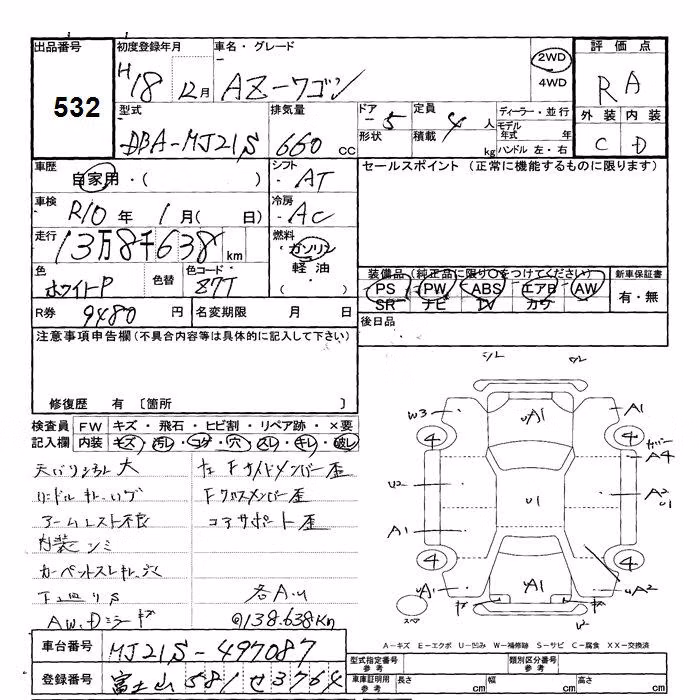 出品番号
532
初度登録年月
H18 12月
車名・グレード
AZ-ワゴン
2WD
4WD
評価点
RA
外装 内装
C D
型式
DBA-MJ21S
排気量
660 cc
ドア
5
形状
定員
4 人
積載
kg
ディーラー・並行
モデル年式 年
ハンドル 左・右
車歴
自家用・( )
シフト
AT
セールスポイント (正常に機能するものに限ります)
車検
R10 年 1月( 日)
冷房
AC
走行
13万8千638km
燃料
ガソリン
軽油
色
ホワイトP
色替
色コード
27T
装備品 (純正品に限り○をつけてください)
PS PW ABS エアB AW
SR ナビ TV カワ
新車保証書
有・無
R券
9480 円
名変期限 月 日
後日品
注意事項申告欄(不具合内容等は具体的に記入して下さい)
修復歴 有 〔箇所 〕
検査員記入欄
FW キズ・飛石・ヒビ割・リペア跡・×要
内装 キズ・汚レ・コゲ・穴・スレ・キレ・破レ
左Fサイドメンバー歪
Fクロスメンバー歪
コアサポート歪
アームレスト不良
内装シミ
カーペットスレキレ穴
下廻りS
各AU
AW、Dミラーキズ
@138.638Km
車台番号
MJ21S-497087
登録番号
富士山 581 せ3764
W3
UA1
A1
4
4
カバー
A4
U2
U1
A2
U1
A1
4
4
UA1
A1
UA2
スペア
A-キズ E-エクボ U-凹み W-補修跡 S-サビ C-腐食 XX-交換済
型式指定番号 参考
類別区分番号 参考
車庫証明用 参考
長さ cm
幅 cm
高さ cm